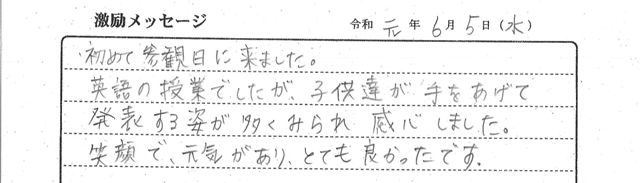 激励メッセージ 令和 元 年 6 月 5 日（水）
初めて参観日に来ました。
英語の授業でしたが、子供達が手をあげて
発表する姿が多くみられ感心しました。
笑顔で、元気があり、とても良かったです。